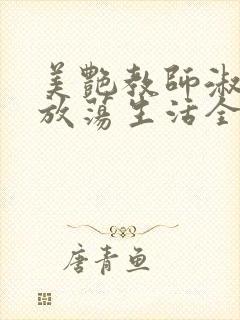 美艷教師淑
放蕩生活全
唐青魚